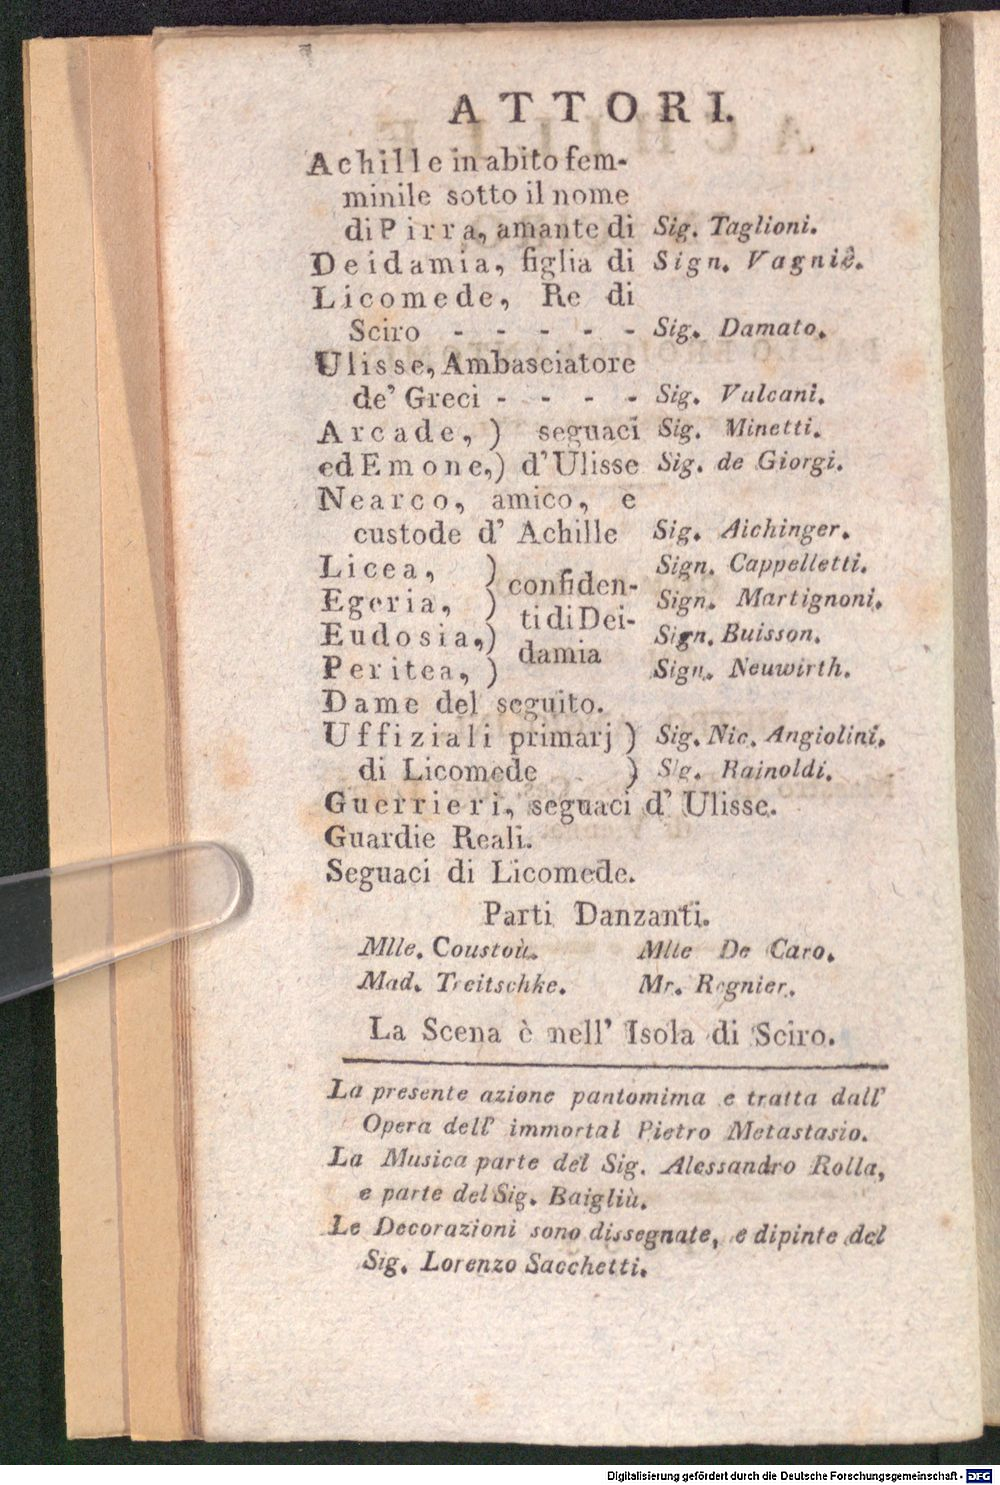 ATTORI.
Achille in abito fem-
minile sotto il nome
di Pirra, amante di Sig. Taglioni.
Deidamia, figlia di Sign. Vagniè.
Licomede, Re di
Sciro - - - - - Sig. Damato.
Ulisse, Ambasciatore
de' Greci - - - - Sig. Vulcani.
Arcade, ) seguaci Sig. Minetti.
ed Emone,) d'Ulisse Sig. de Giorgi.
Nearco, amico, e
custode d' Achille Sig. Aichinger.
Licea, ) Sign. Cappelletti.
confiden-
Egeria, ) Sign. Martignoni.
ti di Dei-
Eudosia,) Sign. Buisson.
damia
Peritea, ) Sign. Neuwirth.
Dame del seguito.
Uffiziali primarj ) Sig. Nic. Angiolini.
di Licomede ) Sig. Rainoldi.
Guerrieri, seguaci d' Ulisse.
Guardie Reali.
Seguaci di Licomede.
Parti Danzanti.
Mlle. Coustoù. Mlle De Caro.
Mad. Treitschke. Mr. Regnier.
La Scena è nell' Isola di Sciro.
La presente azione pantomima e tratta dall'
Opera dell' immortal Pietro Metastasio.
La Musica parte del Sig. Alessandro Rolla,
e parte del Sig. Baigliù.
Le Decorazioni sono dissegnate, e dipinte del
Sig. Lorenzo Sacchetti.
Digitalisierung gefördert durch die Deutsche Forschungsgemeinschaft - DFG